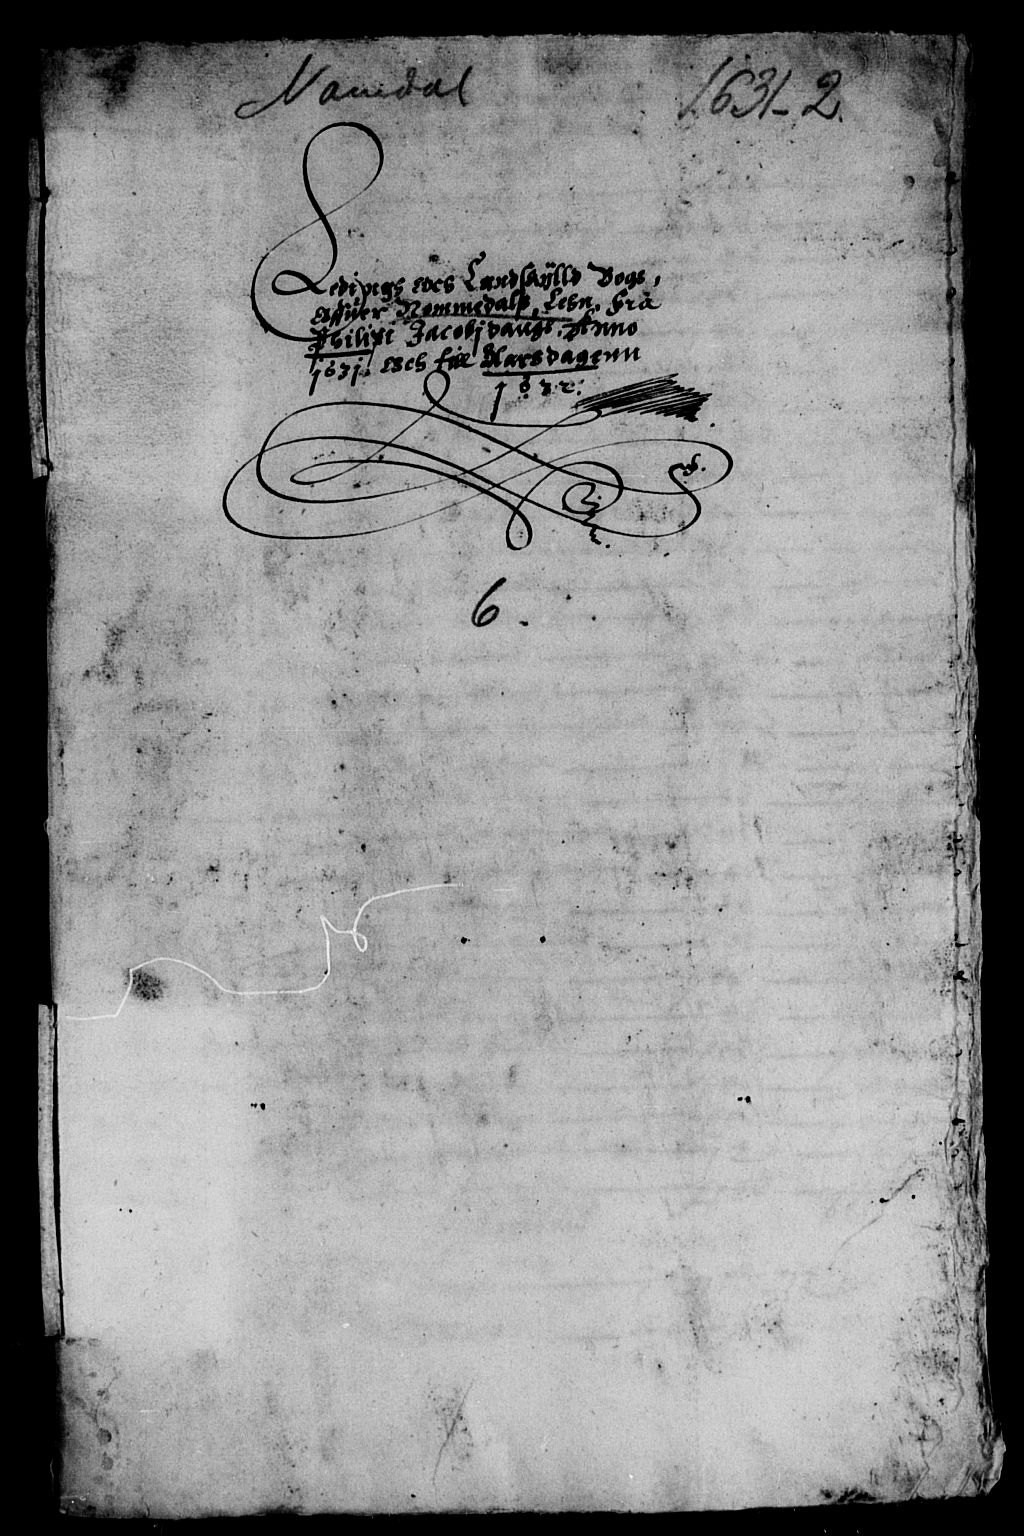 Namdal 1631-2.
Ledings och Landskylld Bogs,
Offuer Nommedals, Lehn, Fra
Philippi Jacobj daugs. Anno
1631. och till Aarsdagenn
1632.
6.